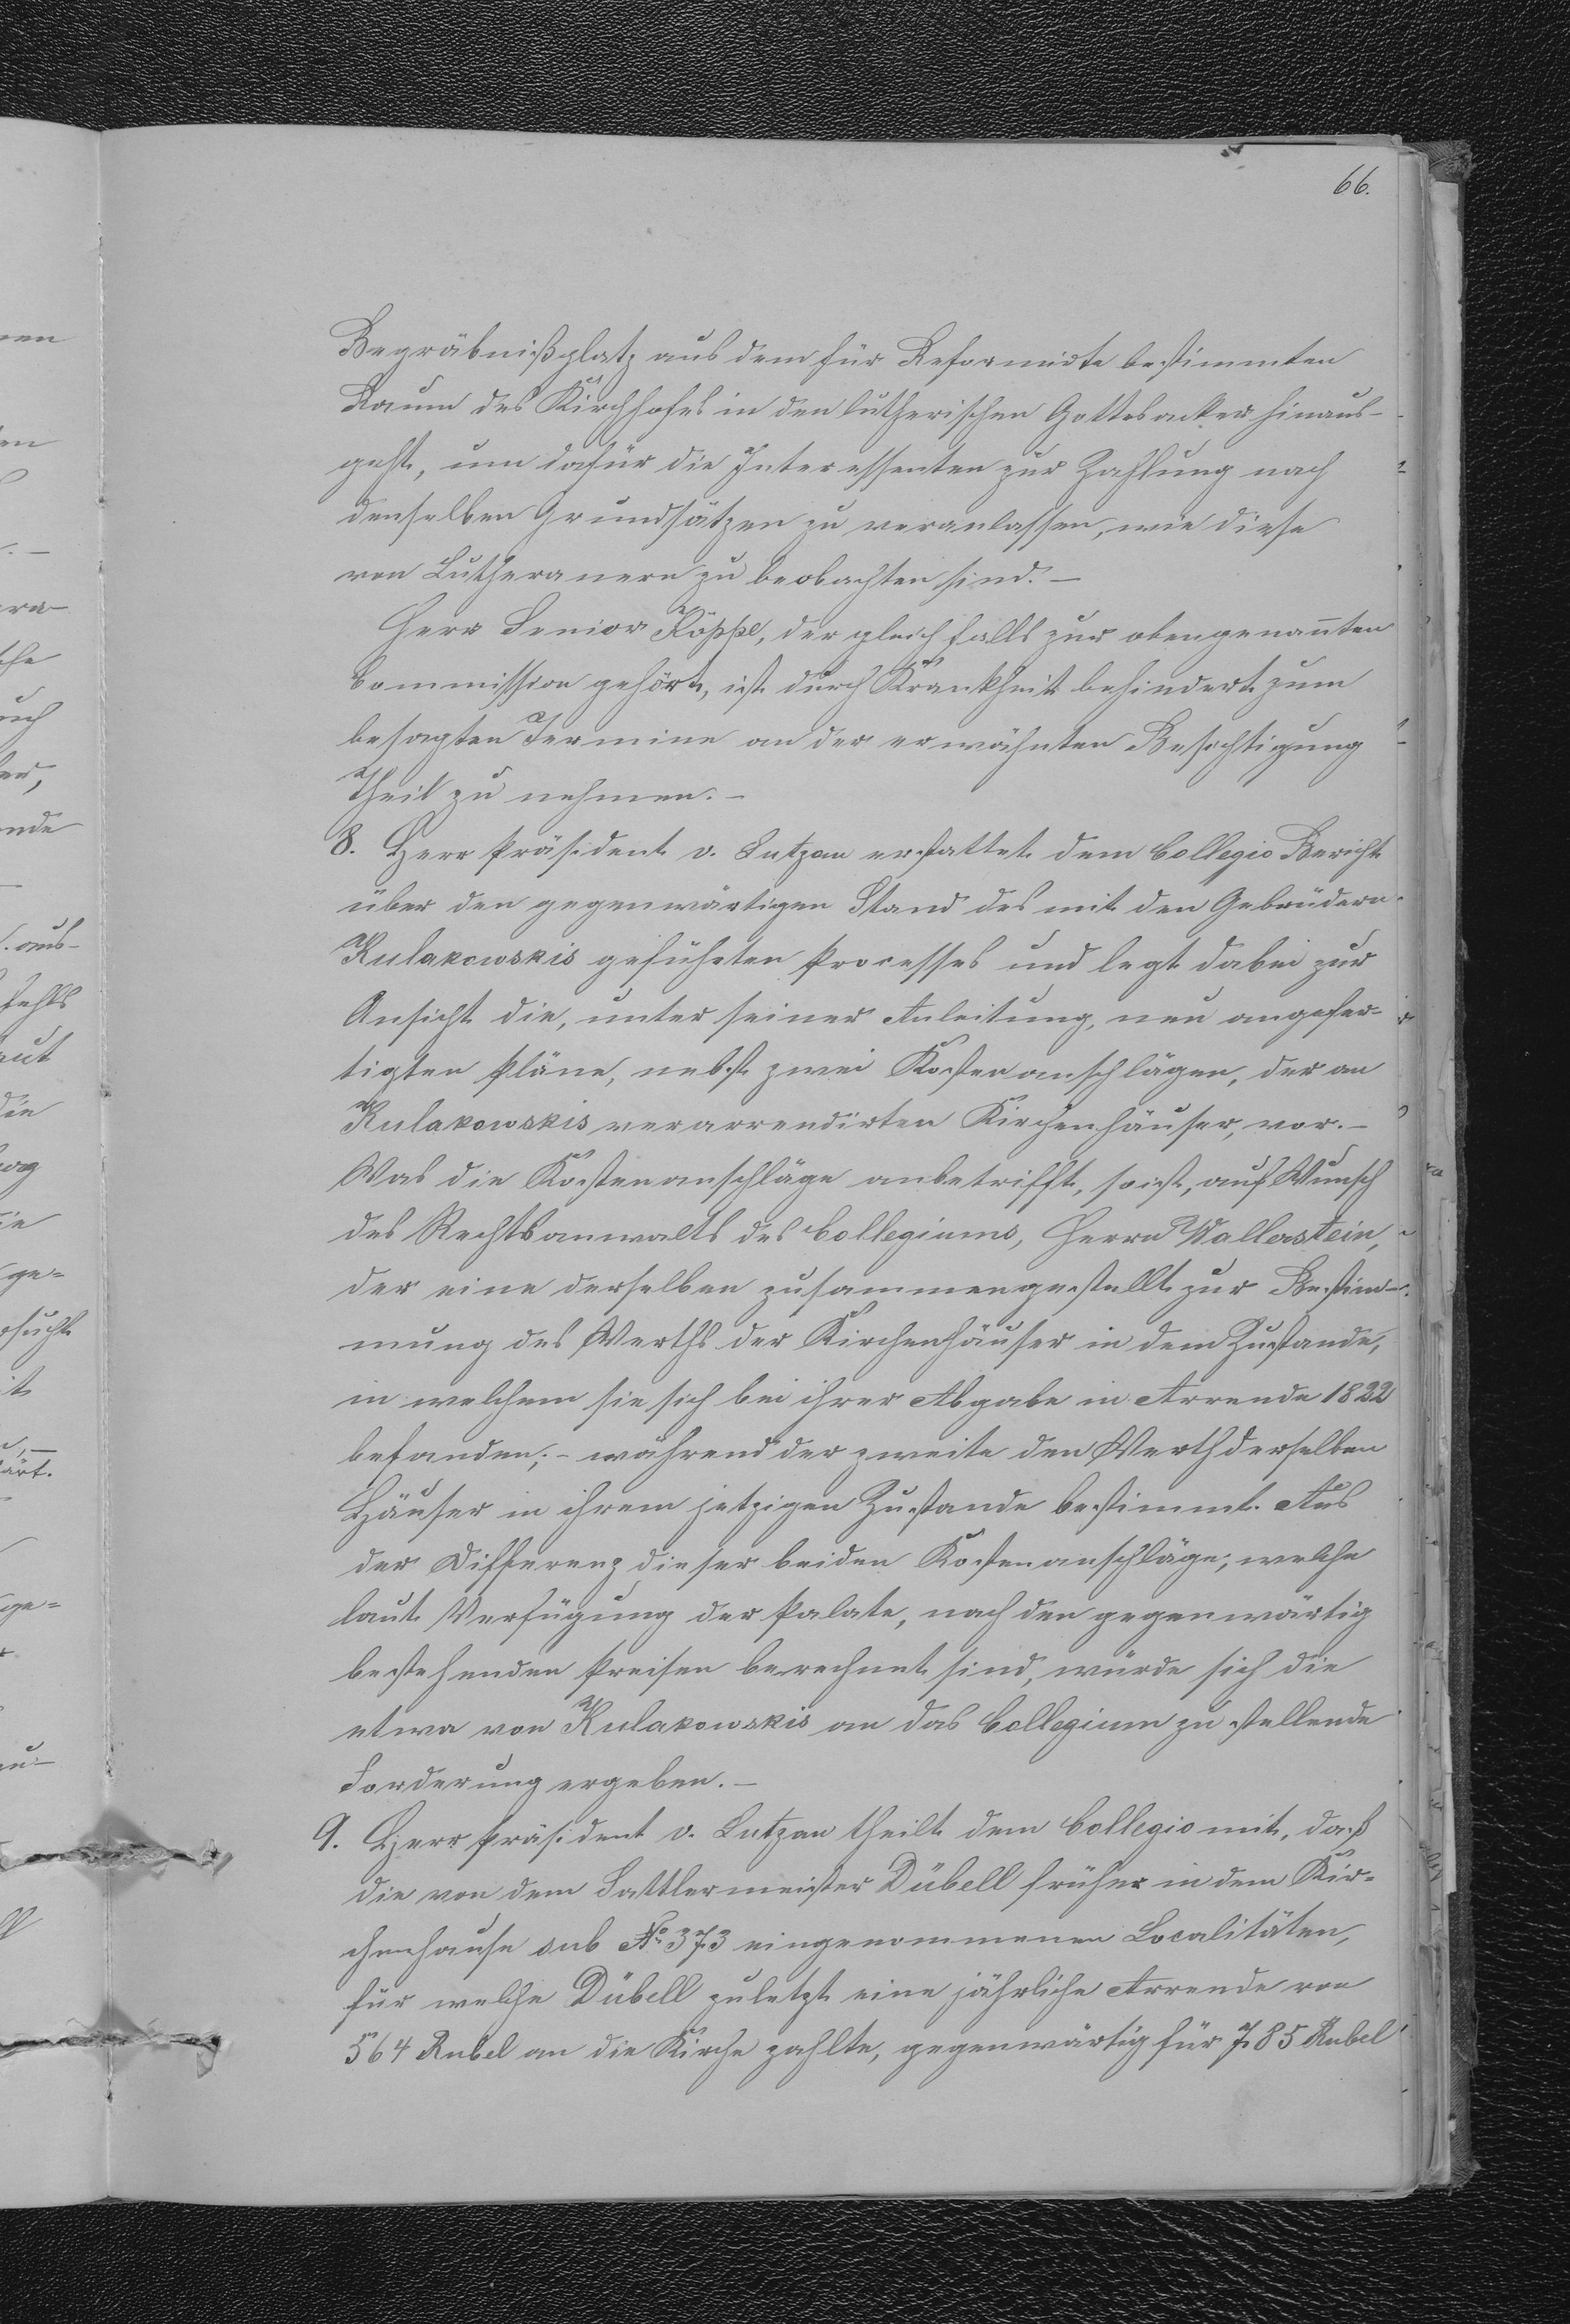 66.
Begräbnißplatz aus dem für Reformirte bestimmten
Raum des Kirchhofes in den lutherischen Gottesacker hinaus-
geht, um dafür die Interessenten zur Zahlung nach
denselben Grundsätzen zu veranlassen, wie diese
von Lutheranern zu beobachten sind. —
Herr Senior Köppe, der gleichfalls zur obengenannten
Commission gehört, ist durch Krankheit behindert zum
besagten Termine an der erwähnten Besichtigung
Theil zu nehmen. —
8. Herr Präsident v. Lutzau erstattet dem Collegio Bericht
über den gegenwärtigen Stand des mit den Gebrüdern
Kulakowskis geführten Processes und legt dabei zur
Ansicht die, unter seiner Anleitung, neu angefer-
tigten Pläne, nebst zwei Kostenanschlägen, der an
Kulakowskis verarrendirten Kirchenhäuser, vor. —
Was die Kostenanschläge anbetrifft, so ist, auf Wunsch
des Rechtsanwalts des Collegiums, Herrn Wallerstein,
der eine derselben zusammengestellt zur Bestim-
mung des Werths der Kirchenhäuser in dem Zustande,
in welchem sie sich bei ihrer Abgabe in Arrende 1822
befanden; – während der zweite den Werth derselben
Häuser in ihrem jetzigen Zustande bestimmt. Aus
der Differenz dieser beiden Kostenanschläge, welche
laut Verfügung der Palate, nach den gegenwärtig
bestehenden Preisen berechnet sind, würde sich die
etwa von Kulakowskis an das Collegium zu stellende
Forderung ergeben. —
9. Herr Präsident v. Lutzau theilt dem Collegio mit, daß
die von dem Sattlermeister Dübell früher in dem Kir-
chenhause sub № 373 eingenommenen Localitäten,
für welche Dübell zuletzt eine jährliche Arrende von
564 Rubel an die Kirche zahlte, gegenwärtig für 785 Rubel